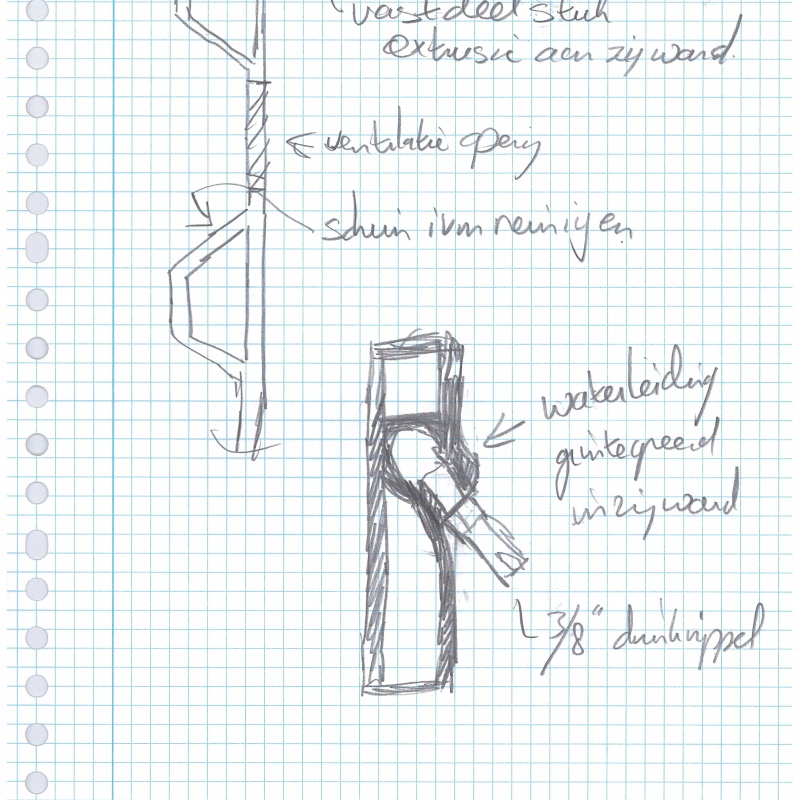 vast deel stuk
extrusie aan zijwand.
ventilatie opening
schuin ivm reinigen
waterleiding
geintegreerd
in zijwand
3/8" drinknippel